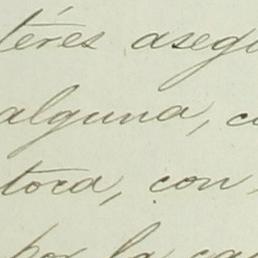 térés asegu
alguna, co
toca, con
por la ca